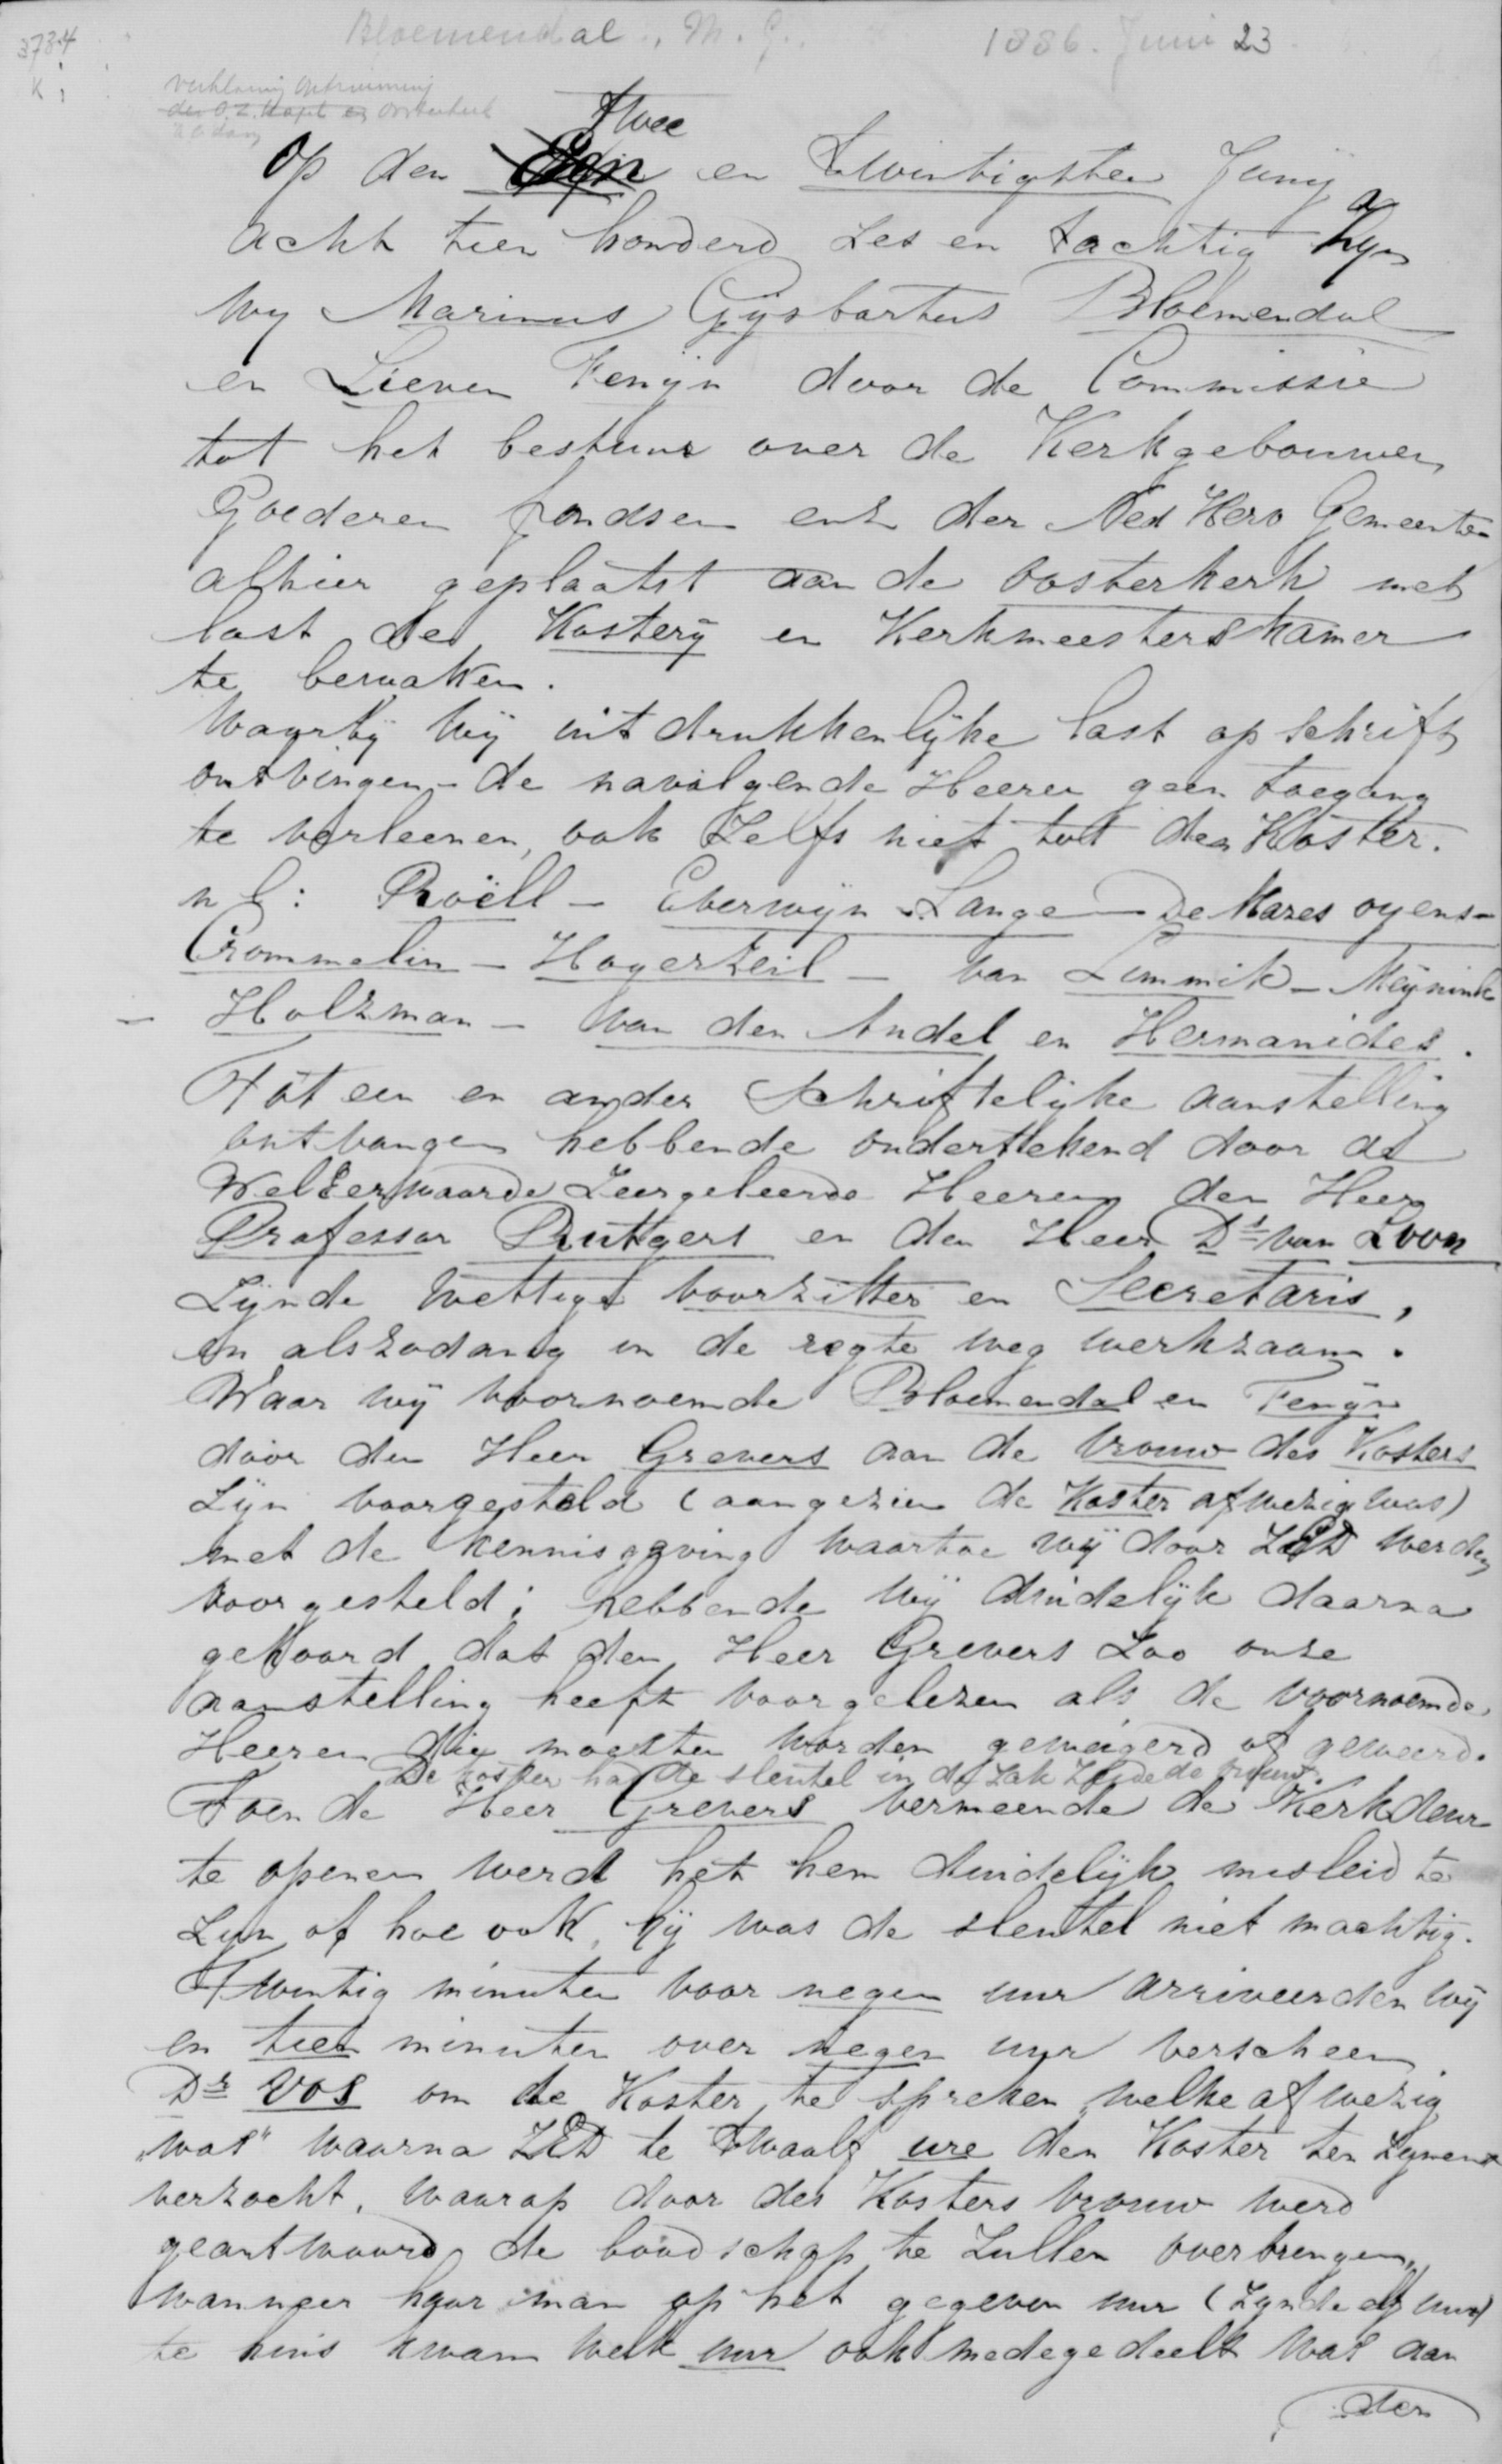 3784
K
Bloemendal, M. G. 1886. Juni 23
verklaring ontruiming
der O.Z. Kapel en Oosterkerk
Twee
Op den Een en Twintigsten Junij
acht tien honderd zes en tachtig zijn
wij Marinus Gijsbartus Bloemendal
en Lieven Fenijn door de Commissie
tot het bestuur over de Kerkgebouwen,
Goederen fondsen enz der Ned Herv Gemeente
alhier geplaatst aan de Oosterkerk met
last de Kosterij en Kerkmeesterskamer
te bewaken.
Waarbij wij uitdrukkenlijke last op schrift
ontvingen de navolgende Heeren geen toegang
te verleenen, ook zelfs niet tot den Koster.
nl: Roëll - Everwijn Lange - De Mares oyens -
Crommelin - Hogerzeil - van Lummik - Meijnink
- Holzman - van den Andel en Hermanides.
Tot een en ander Schriftelijke aanstelling
ontvangen hebbende ondertekend door de
WelEerwaarde Zeergeleerde Heeren den Heer
Professor Rutgers en den Heer Ds van Loon
Zijnde Wettige voorzitter en Secretaris,
en alszodanig in de regte weg werkzaam.
Waar wij voornoemde Bloemendal en Fenijn
door den Heer Grevers aan de vrouw des Kosters
Zijn voorgesteld (aangezien de Koster afwezig was)
met de kennisgeving waartoe wij door ZED werden
voorgesteld; hebbende wij duidelijk daarna
gehoord dat den Heer Grevers Zoo onze
aanstelling heeft voorgelezen als de voornoemde
Heeren die moesten worden geweigerd of geweerd.
De koster had de sleutel in de zak Zeide de vrouw.
Toen de Heer Grevers vermeende de Kerkdeur
te openen werd het hem duidelijk misleid te
Zijn of hoe ook, hij was de sleutel niet machtig.
Twintig minuten voor negen uur arriveerden wij
en tien minuten over negen uur verscheen
Dr Vos om de Koster te spreken „welke afwezig
was" waarna ZED te Twaalf ure den Koster ten Zijnent
verzocht, waarop door des Kosters vrouw werd
geantwoord de boodschap te Zullen overbrengen,
wanneer haar man op het gegeven uur (Zijnde elf uur)
te huis kwam welk uur ook medegedeelt was aan
den